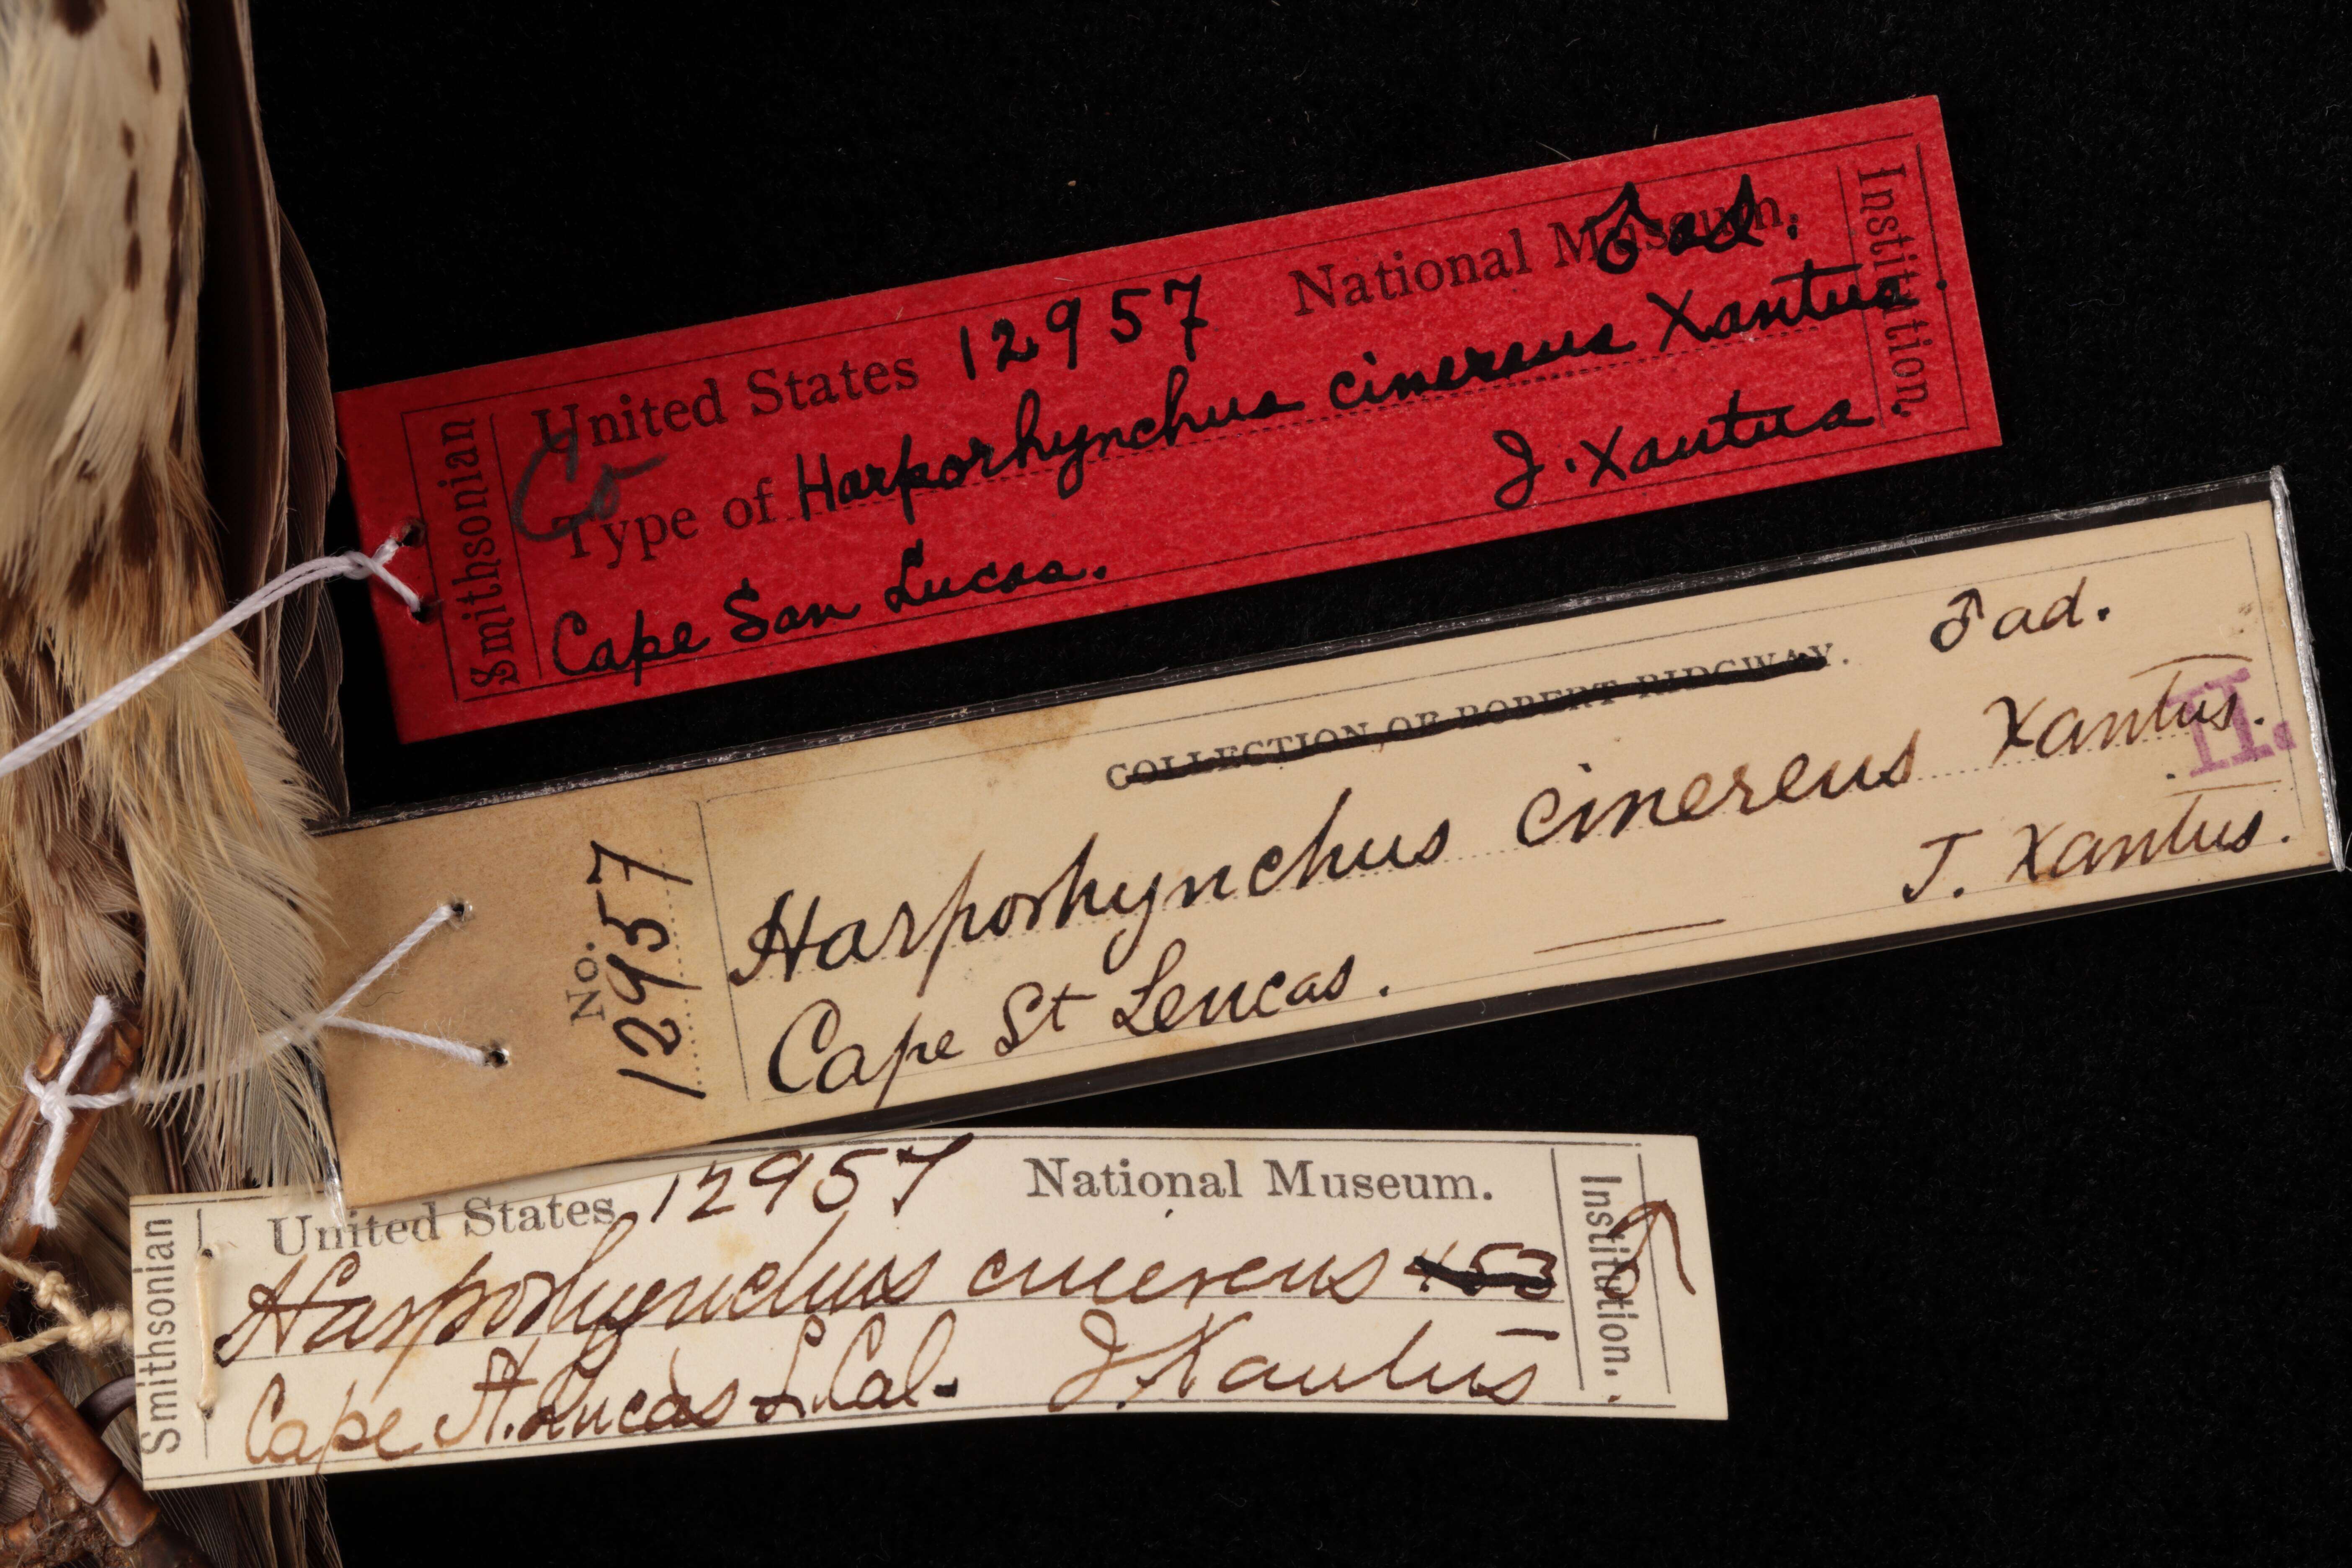 Smithsonian
United States 12957 National Museum. ♂ ad.
Co
Type of Harporhynchus cinereus Xantus.
Cape San Lucas. J. Xantus.
Institution.
No. 12957
COLLECTION OF ROBERT RIDGWAY. ♂ ad.
Harporhynchus cinereus Xantus.
II.
Cape St Leucas. J. Xantus.
Smithsonian
United States 12957 National Museum.
Harporhynchus cinereus
Cape St. Lucas L. Cal. J. Xantus
Institution.
♂